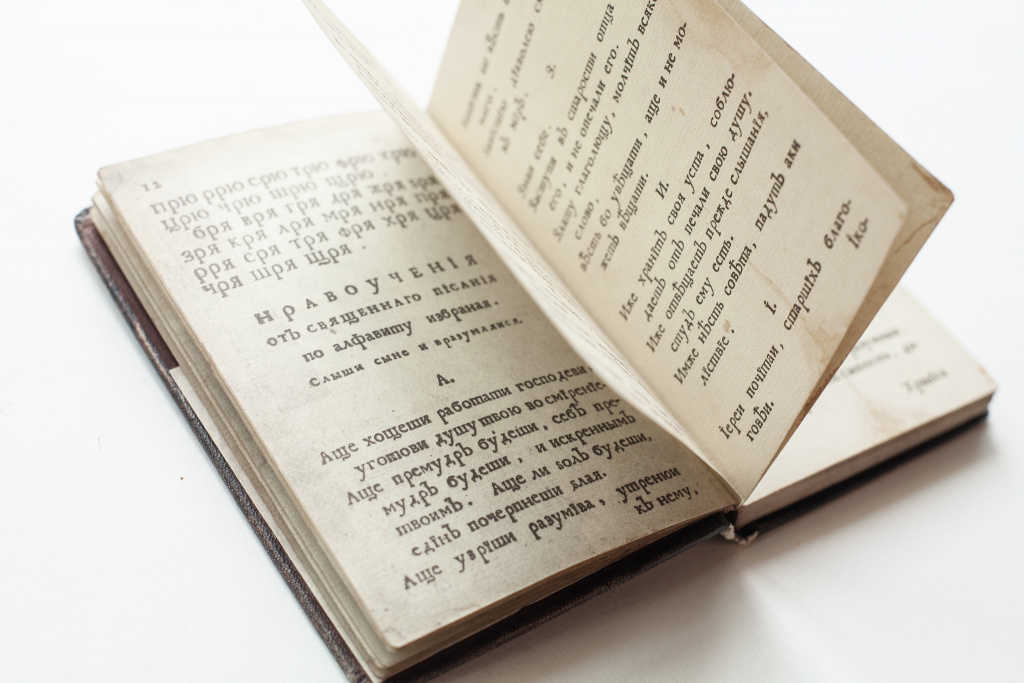 12
прю ррю срю трю фрю хрю
црю чрю шрю щрю .
бря вря гря дря жря
зря кря лря мря нря пря
рря сря тря фря хря цря
чря шря щря .
НРАВОУЧЕНІЯ
отъ священнаго пісанія
по алфавиту избраная.
Слыши сыне и вразумляися.
А.
Аще хощеши работати господеви
уготови душу твою во смірениі-
Аще премудръ будеши, себѣ пре-
мудръ будеши, и искреннымъ
твоимъ. Аще ли золъ будеши,
едінъ почерпнеши злая.
Аще узріши разумїва, утренюи
къ нему.
З.
Знаи себе.
Заступи въ старости отца
его, и не опечали его.
Злату глаголющу, молчітъ всяко
слово,
вѣсть бо увѣщати, аще и не мо-
жетъ вѣщати.
И.
Иже хранітъ своя уста, соблю-
даетъ отъ печали свою душу.
Иже отвѣщаетъ прежде слышанія,
студъ ему есть.
Имже нѣсть совѣта, падутъ аки
ліствіе.
І.
іереи почітаи, старшихъ благо-
говѣи.
іко-